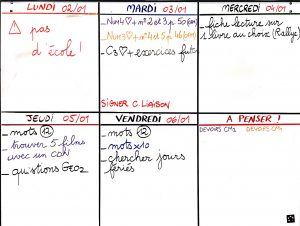 LUNDI 02/01
⚠ pas
d'école!
MARDI 03/01
Num4♡+n°2 et 3 p.50 (CM1)
Num3♡+n°4 et 5 p.46 (CM1)
C3♡+ exercices
SIGNER C. LIAISON
MERCREDI 04/01
_fiche lecture sur
1 livre au choix (Rallye)
JEUDI 05/01
_mots 12
_trouver 5 films
avec un
_questions GEO2
VENDREDI 06/01
_mots 12
_mots x10
_chercher jours
fériés
A PENSER !
DEVOIRS CM1 DEVOIRS CM2